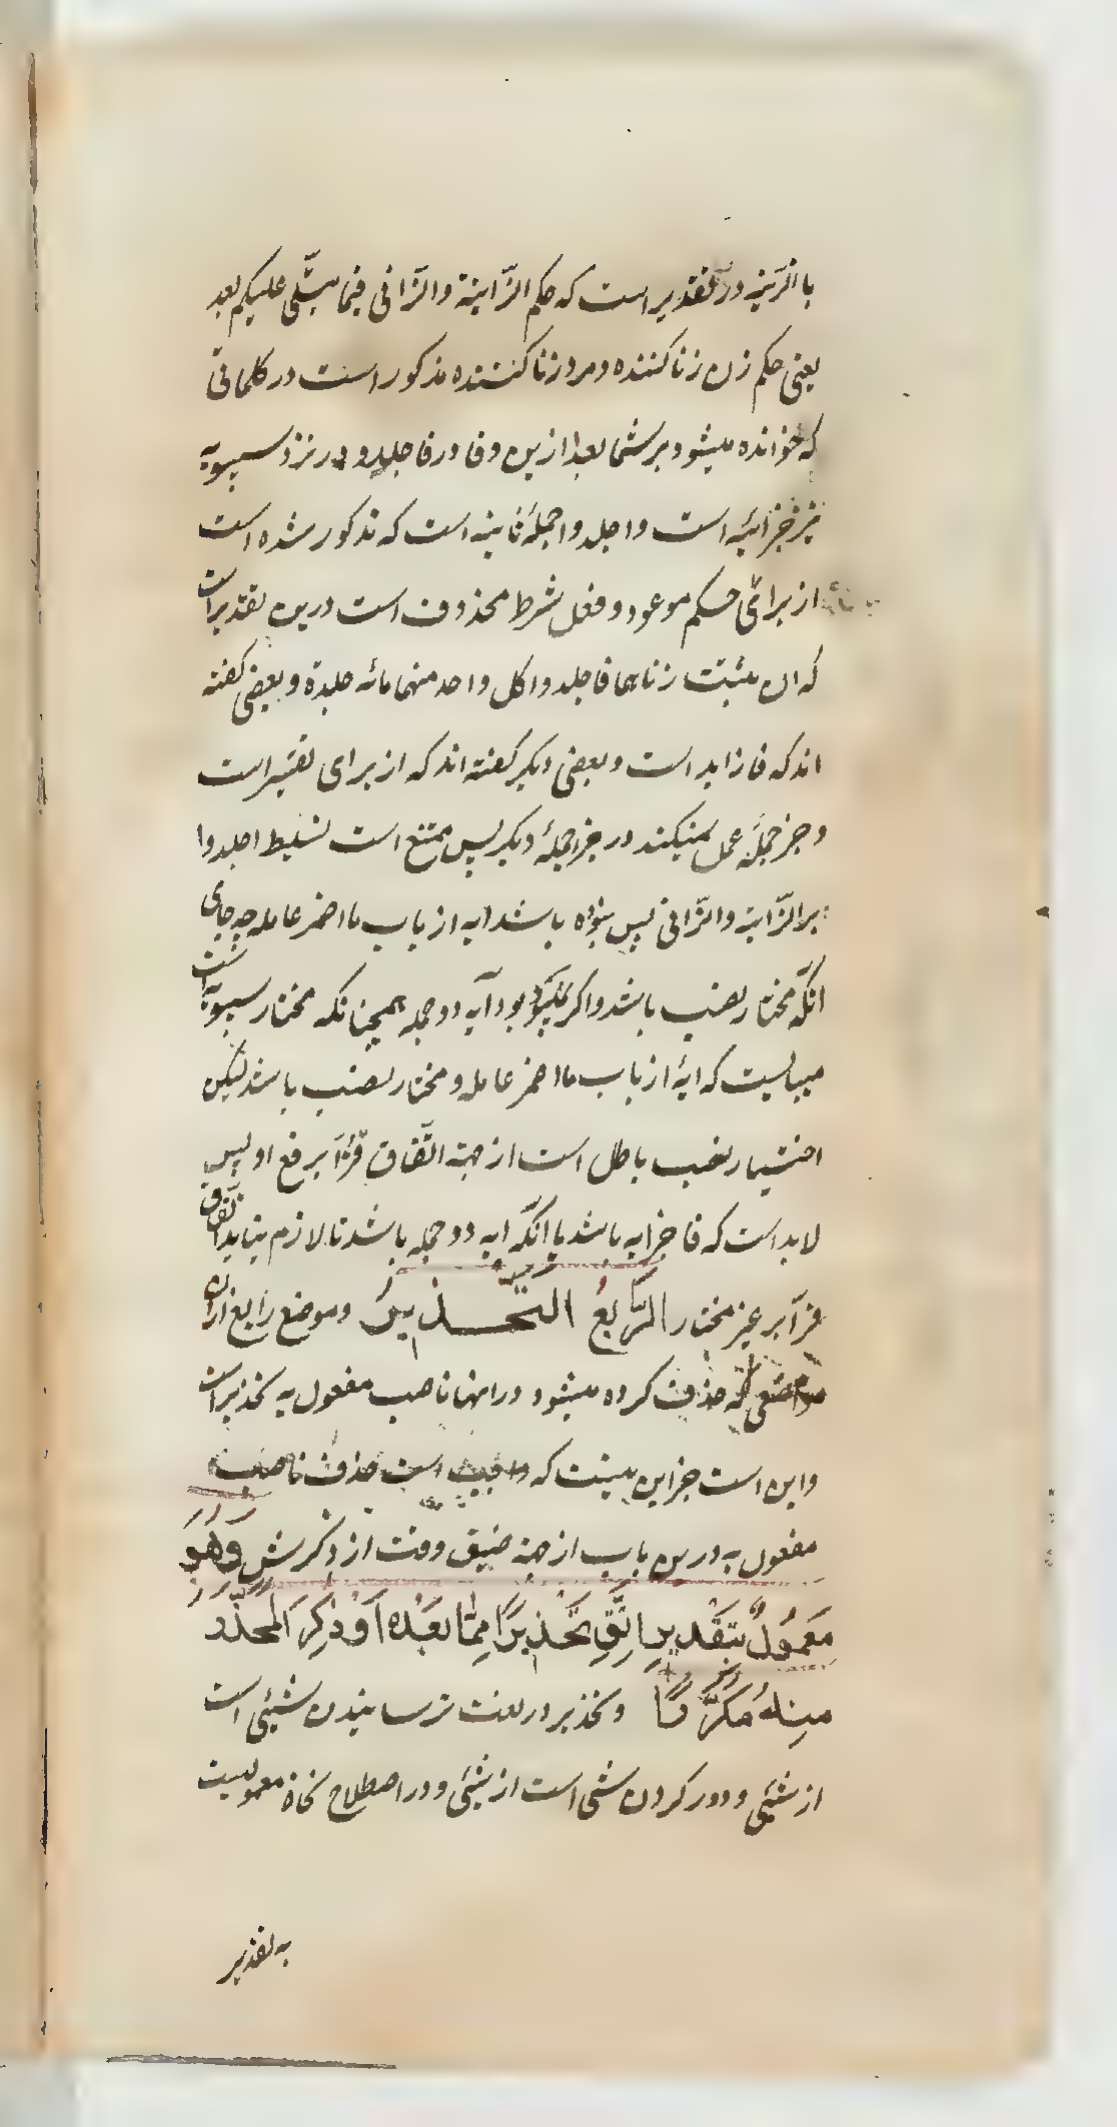 با الزانیه در تقدیر است که حکم الزّانیة والزّانی فیما یتلی علیکم بعد
یعنی حکم زن زنا کننده و مرد زنا کننده مذکور است در کلماتی
که خوانده میشود بر شما بعد ازین و فا در فاجلدوا در نزد سیبویه
نیز جزائیه است واجلدوا جملهٔ ثانیه است که مذکور شده است
از برای حکم موعود و فعل شرط محذوف است درین تقدیر است
که ان یثبت زناهما فاجلدوا کل واحد منهما مائه جلدة و بعضی گفته
اند که فا زاید است و بعضی دیگر گفته اند که از برای تفسیر است
و جزء جمله عمل نمیکند در جزء جملهٔ دیگر پس ممتنع است تسلیط اجلدوا
بر الزّانیة والزّانی پس نبوده باشد ایه از باب ما اضمر عامله چه جای
انکه مختار نصب باشد و اگر نمیبود آیه دو جمله همچنانکه مختار سیبویه است
میبایست که ایهٔ از باب ما اضمر عامله و مختار نصب باشد لیکن
اختیار نصب باطل است از جهة اتّفاق قرّا بر رفع او پس
لابد است که فا جزایه باشد یا انکه ایه دو جمله باشد تا لازم نیاید اتفاق
قرآ بر غیر مختار الرّابعُ التَّحْذیرُ و موضع رابع ازان
مواضعی که حذف کرده میشود در انها ناصب مفعول به تحذیر است
و این است جز این نیست که واجب است حذف ناصب
مفعول به درین باب از جهة ضیق وقت از ذکرش وَهُوَ
مَعْمُولٌ بِتَقْدیرِ اتَّقِ تَحْذیرًا مِمَّا بَعْدَهُ اَوْ ذُکِرَ الْمُحَذَّرُ
مِنْهُ مُکَرَّرًا و تحذیر در لغت ترسانیدن شیئی است
از شیئی و دور کردن شی است از شیئی و در اصطلاح نحاة معمولیست
به تقدیر